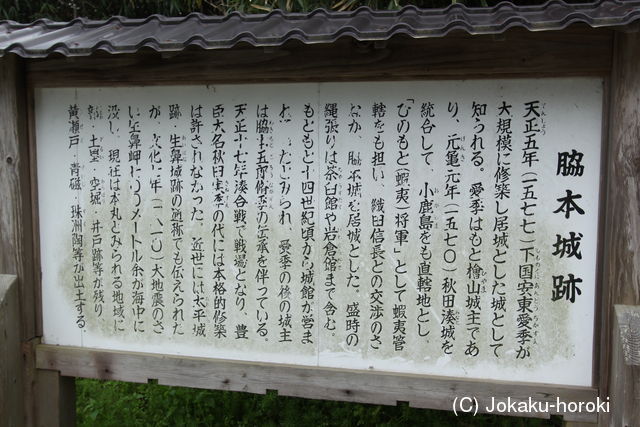 脇本城跡
天正五年(一五七七)下国安東愛季が
大規模に修築し居城とした城として
知られる。愛季はもと檜山城主であ
り、元亀元年(一五七〇)秋田湊城を
統合して、小鹿島をも直轄地とし
「ひのもと(蝦夷)将軍」として蝦夷管
轄をも担い、織田信長との交渉のさ
なか、脇本城を居城とした。盛時の
縄張りは茶臼館や岩倉館まで含む。
もともと十四世紀頃から城館が営ま
れていたとみられ、愛季の後の城主
は脇本五郎脩季の伝承を伴っている。
天正十七年湊合戦で戦場となり、豊
臣大名秋田実季の代には本格的修築
は許されなかった。近世には太平城
跡、生鼻城跡の通称でも伝えられた
が、文化七年(一八一〇)大地震のさ
い生鼻岬二〇〇メートル余が海中に
没し、現在は本丸とみられる地域に
土塁・空堀・井戸跡等が残り
黄瀬戸・青磁・珠洲陶等が出土する。
(C) Jokaku-horoki